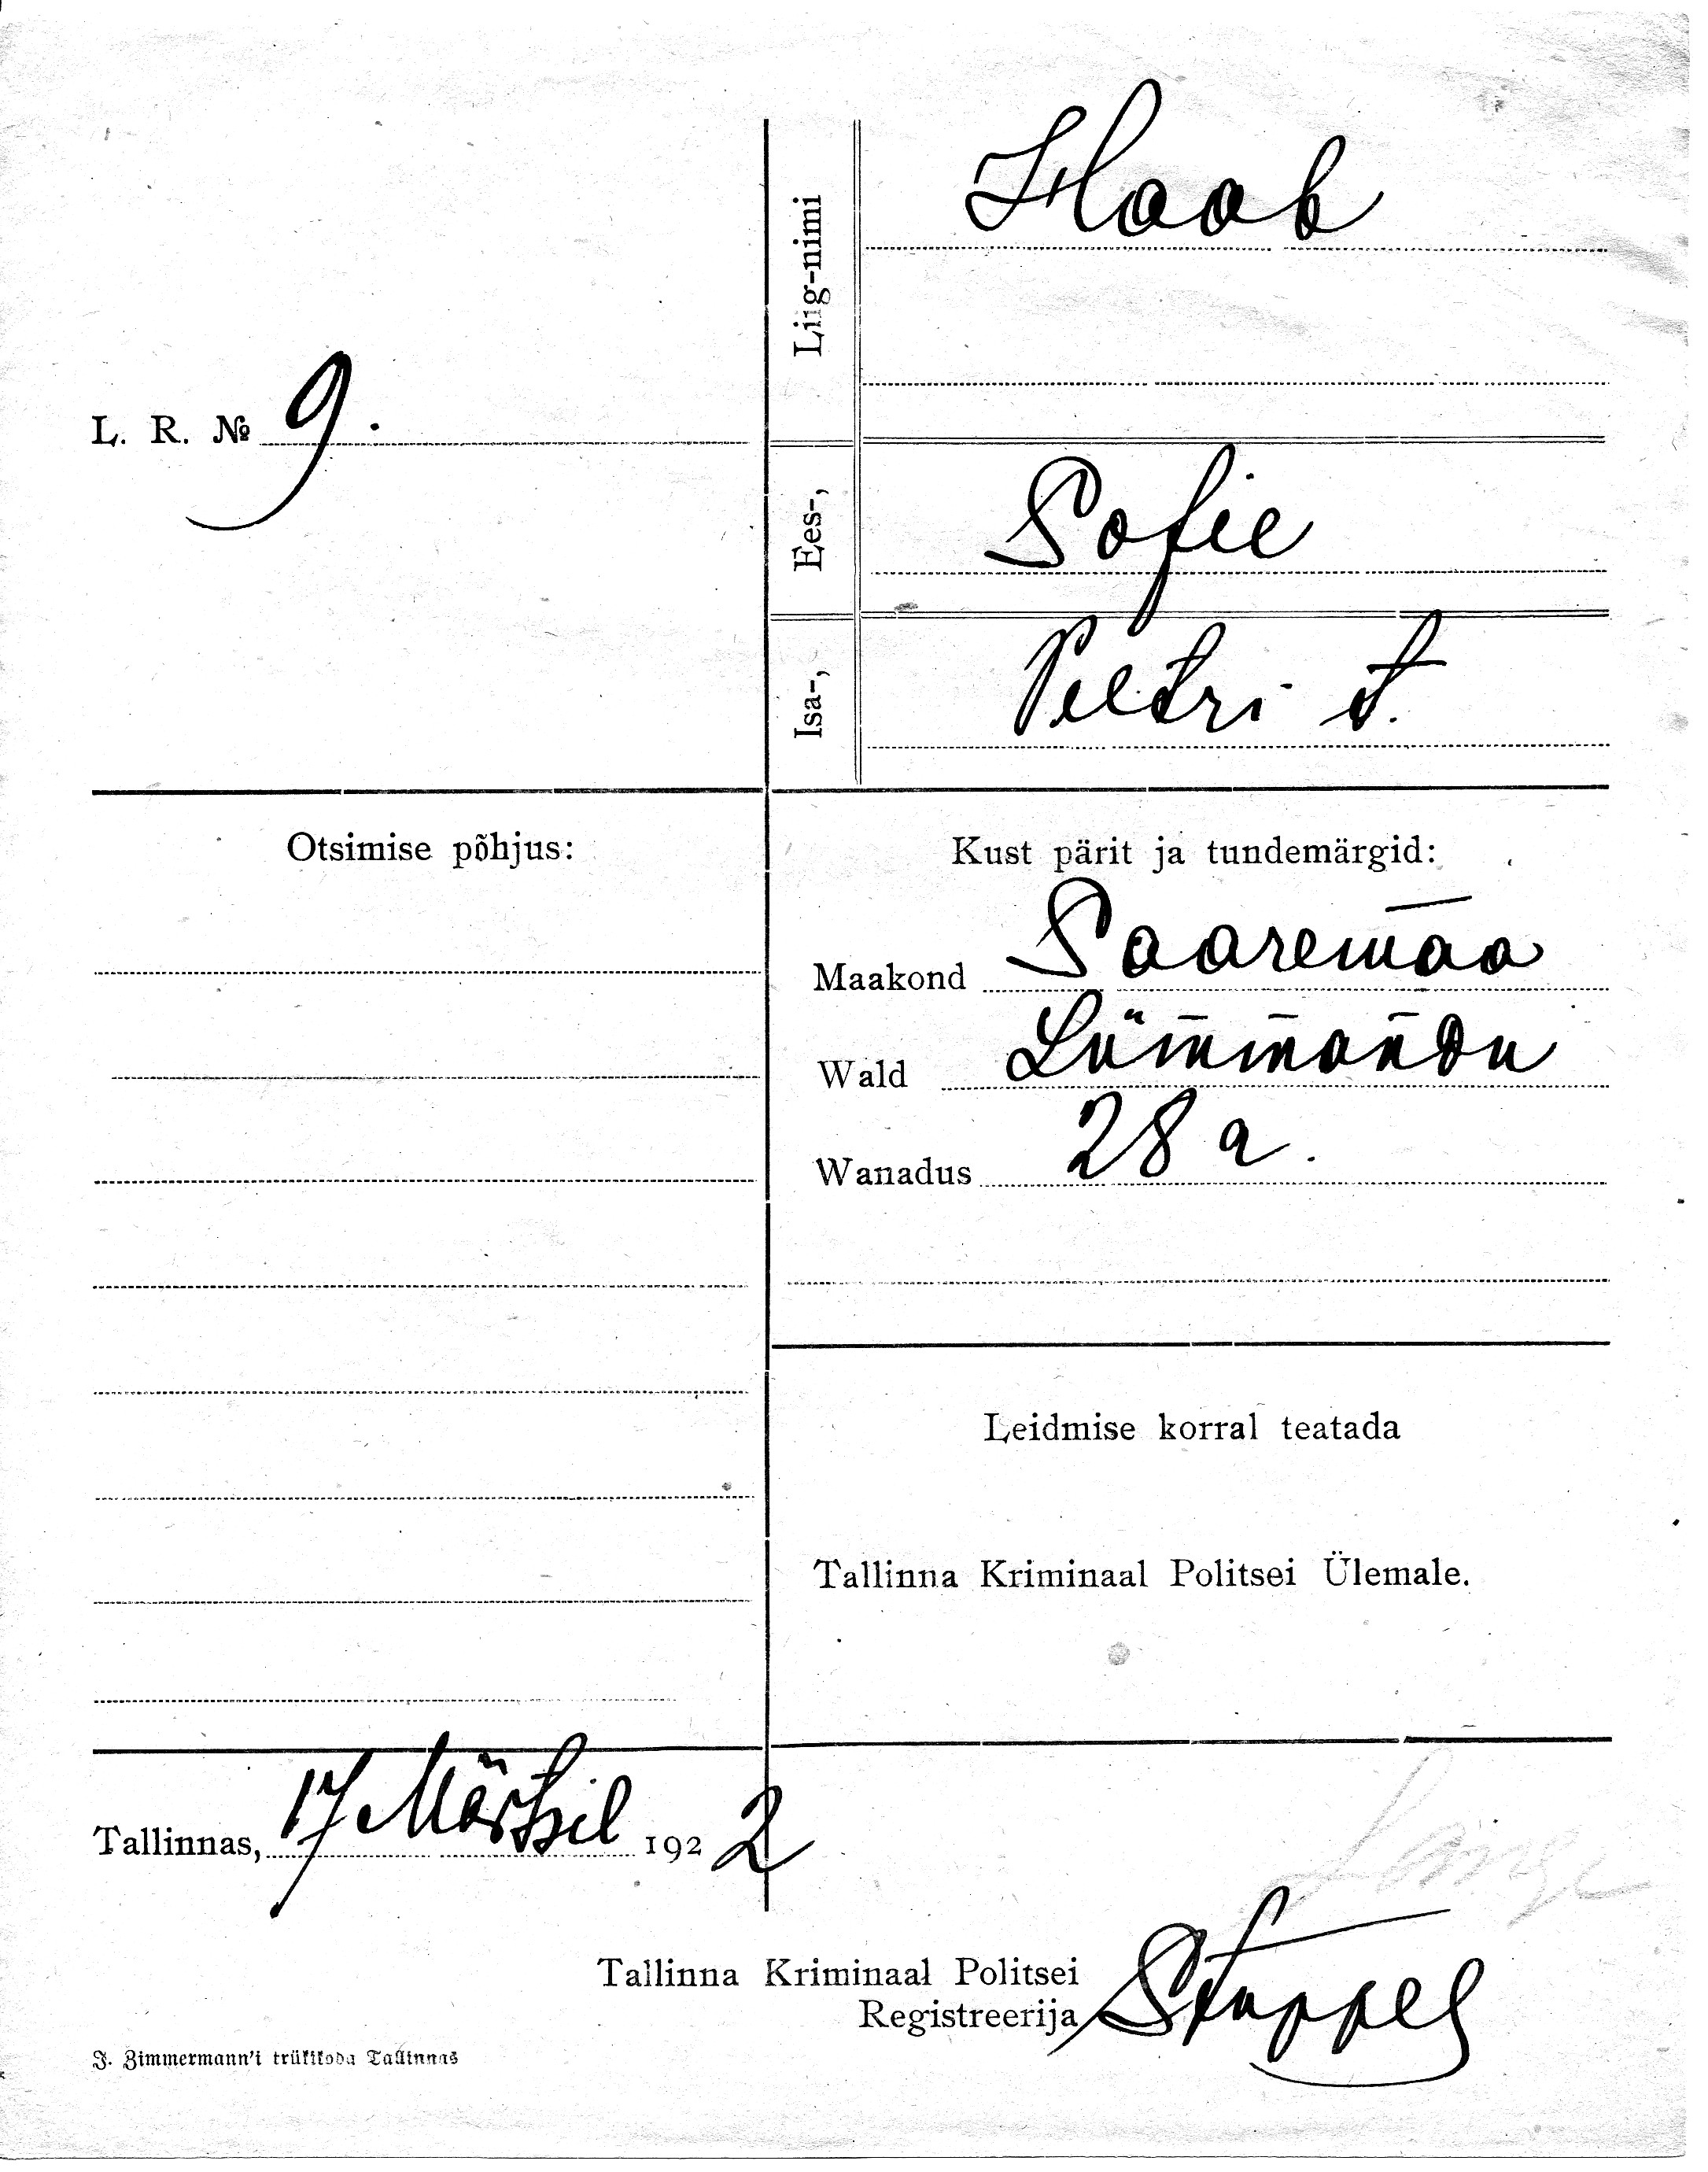 L. R. № 9.
Liig-nimi Haab
Ees-, Sofie
Isa-, Peetri t.
Otsimise põhjus:
Kust pärit ja tundemärgid:
Maakond Saaremaa
Wald Lümmandu
Wanadus 28 a.
Leidmise korral teatada
Tallinna Kriminaal Politsei Ülemale.
Tallinnas, 17 Märtsil 1922
Tallinna Kriminaal Politsei
Registreerija
J. Zimmermann'i trükikoda Tallinnas